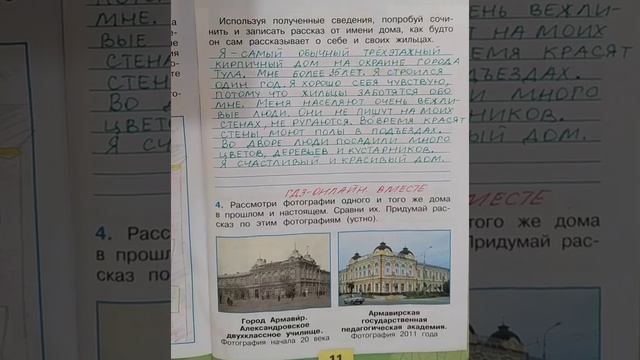 Используя полученные сведения, попробуй сочи-
нить и записать рассказ от имени дома, как будто
он сам рассказывает о себе и своих жильцах.
Я – самый обычный трёхэтажный
кирпичный дом на окраине города
Тула. Мне более 35 лет. Я строился
один год. Я хорошо себя чувствую,
потому что жильцы заботятся обо
мне. Меня населяют очень вежли-
вые люди. Они не пишут на моих
стенах, не ругаются. Вовремя красят
стены, моют полы в подъездах.
Во дворе люди посадили много
цветов, деревьев и кустарников.
Я счастливый и красивый дом.
ГДЗ-ОНЛАЙН ВМЕСТЕ
4. Рассмотри фотографии одного и того же дома
в прошлом и настоящем. Сравни их. Придумай рас-
сказ по этим фотографиям (устно).
Город Армавир.
Александровское
двухклассное училище.
Фотография начала 20 века
Армавирская
государственная
педагогическая академия.
Фотография 2011 года
11